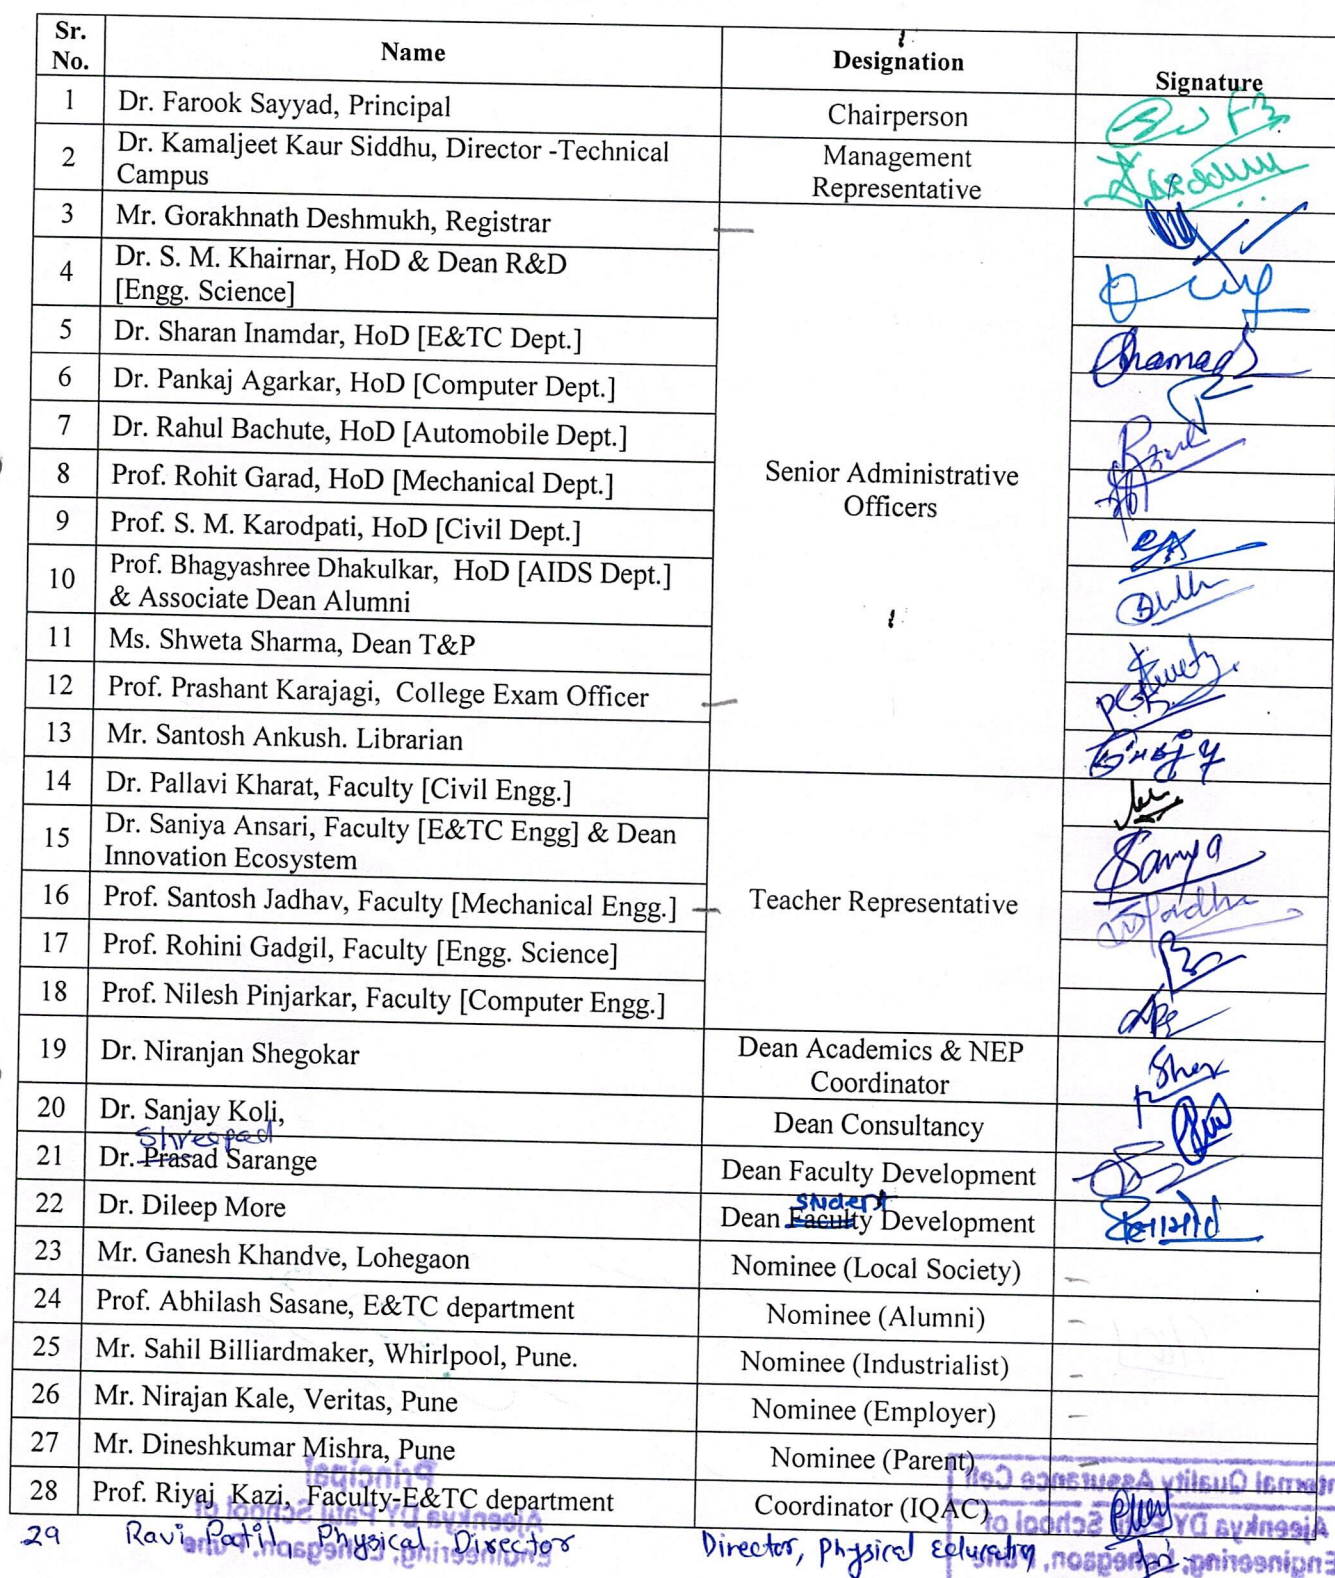 Sr. No. Name Designation Signature
1 Dr. Farook Sayyad, Principal Chairperson
2 Dr. Kamaljeet Kaur Siddhu, Director -Technical Campus Management Representative
3 Mr. Gorakhnath Deshmukh, Registrar
4 Dr. S. M. Khairnar, HoD & Dean R&D [Engg. Science]
5 Dr. Sharan Inamdar, HoD [E&TC Dept.]
6 Dr. Pankaj Agarkar, HoD [Computer Dept.]
7 Dr. Rahul Bachute, HoD [Automobile Dept.]
8 Prof. Rohit Garad, HoD [Mechanical Dept.]
Senior Administrative Officers
9 Prof. S. M. Karodpati, HoD [Civil Dept.]
10 Prof. Bhagyashree Dhakulkar, HoD [AIDS Dept.] & Associate Dean Alumni
11 Ms. Shweta Sharma, Dean T&P
12 Prof. Prashant Karajagi, College Exam Officer
13 Mr. Santosh Ankush. Librarian
14 Dr. Pallavi Kharat, Faculty [Civil Engg.]
15 Dr. Saniya Ansari, Faculty [E&TC Engg] & Dean Innovation Ecosystem
16 Prof. Santosh Jadhav, Faculty [Mechanical Engg.] Teacher Representative
17 Prof. Rohini Gadgil, Faculty [Engg. Science]
18 Prof. Nilesh Pinjarkar, Faculty [Computer Engg.]
19 Dr. Niranjan Shegokar Dean Academics & NEP Coordinator
20 Dr. Sanjay Koli, Dean Consultancy
Shreepad
21 Dr. Prasad Sarange Dean Faculty Development
Student
22 Dr. Dileep More Dean Faculty Development
23 Mr. Ganesh Khandve, Lohegaon Nominee (Local Society) -
24 Prof. Abhilash Sasane, E&TC department Nominee (Alumni) -
25 Mr. Sahil Billiardmaker, Whirlpool, Pune. Nominee (Industrialist) -
26 Mr. Nirajan Kale, Veritas, Pune Nominee (Employer) -
27 Mr. Dineshkumar Mishra, Pune Nominee (Parent) -
28 Prof. Riyaj Kazi, Faculty-E&TC department Coordinator (IQAC)
29 Ravi Patil, Physical Director Director, Physical Education
Principal
Ajeenkya DY Patil School of
Engineering, Lohegaon, Pune
Internal Quality Assurance Cell
Ajeenkya DY Patil School of
Engineering, Lohegaon, Pune